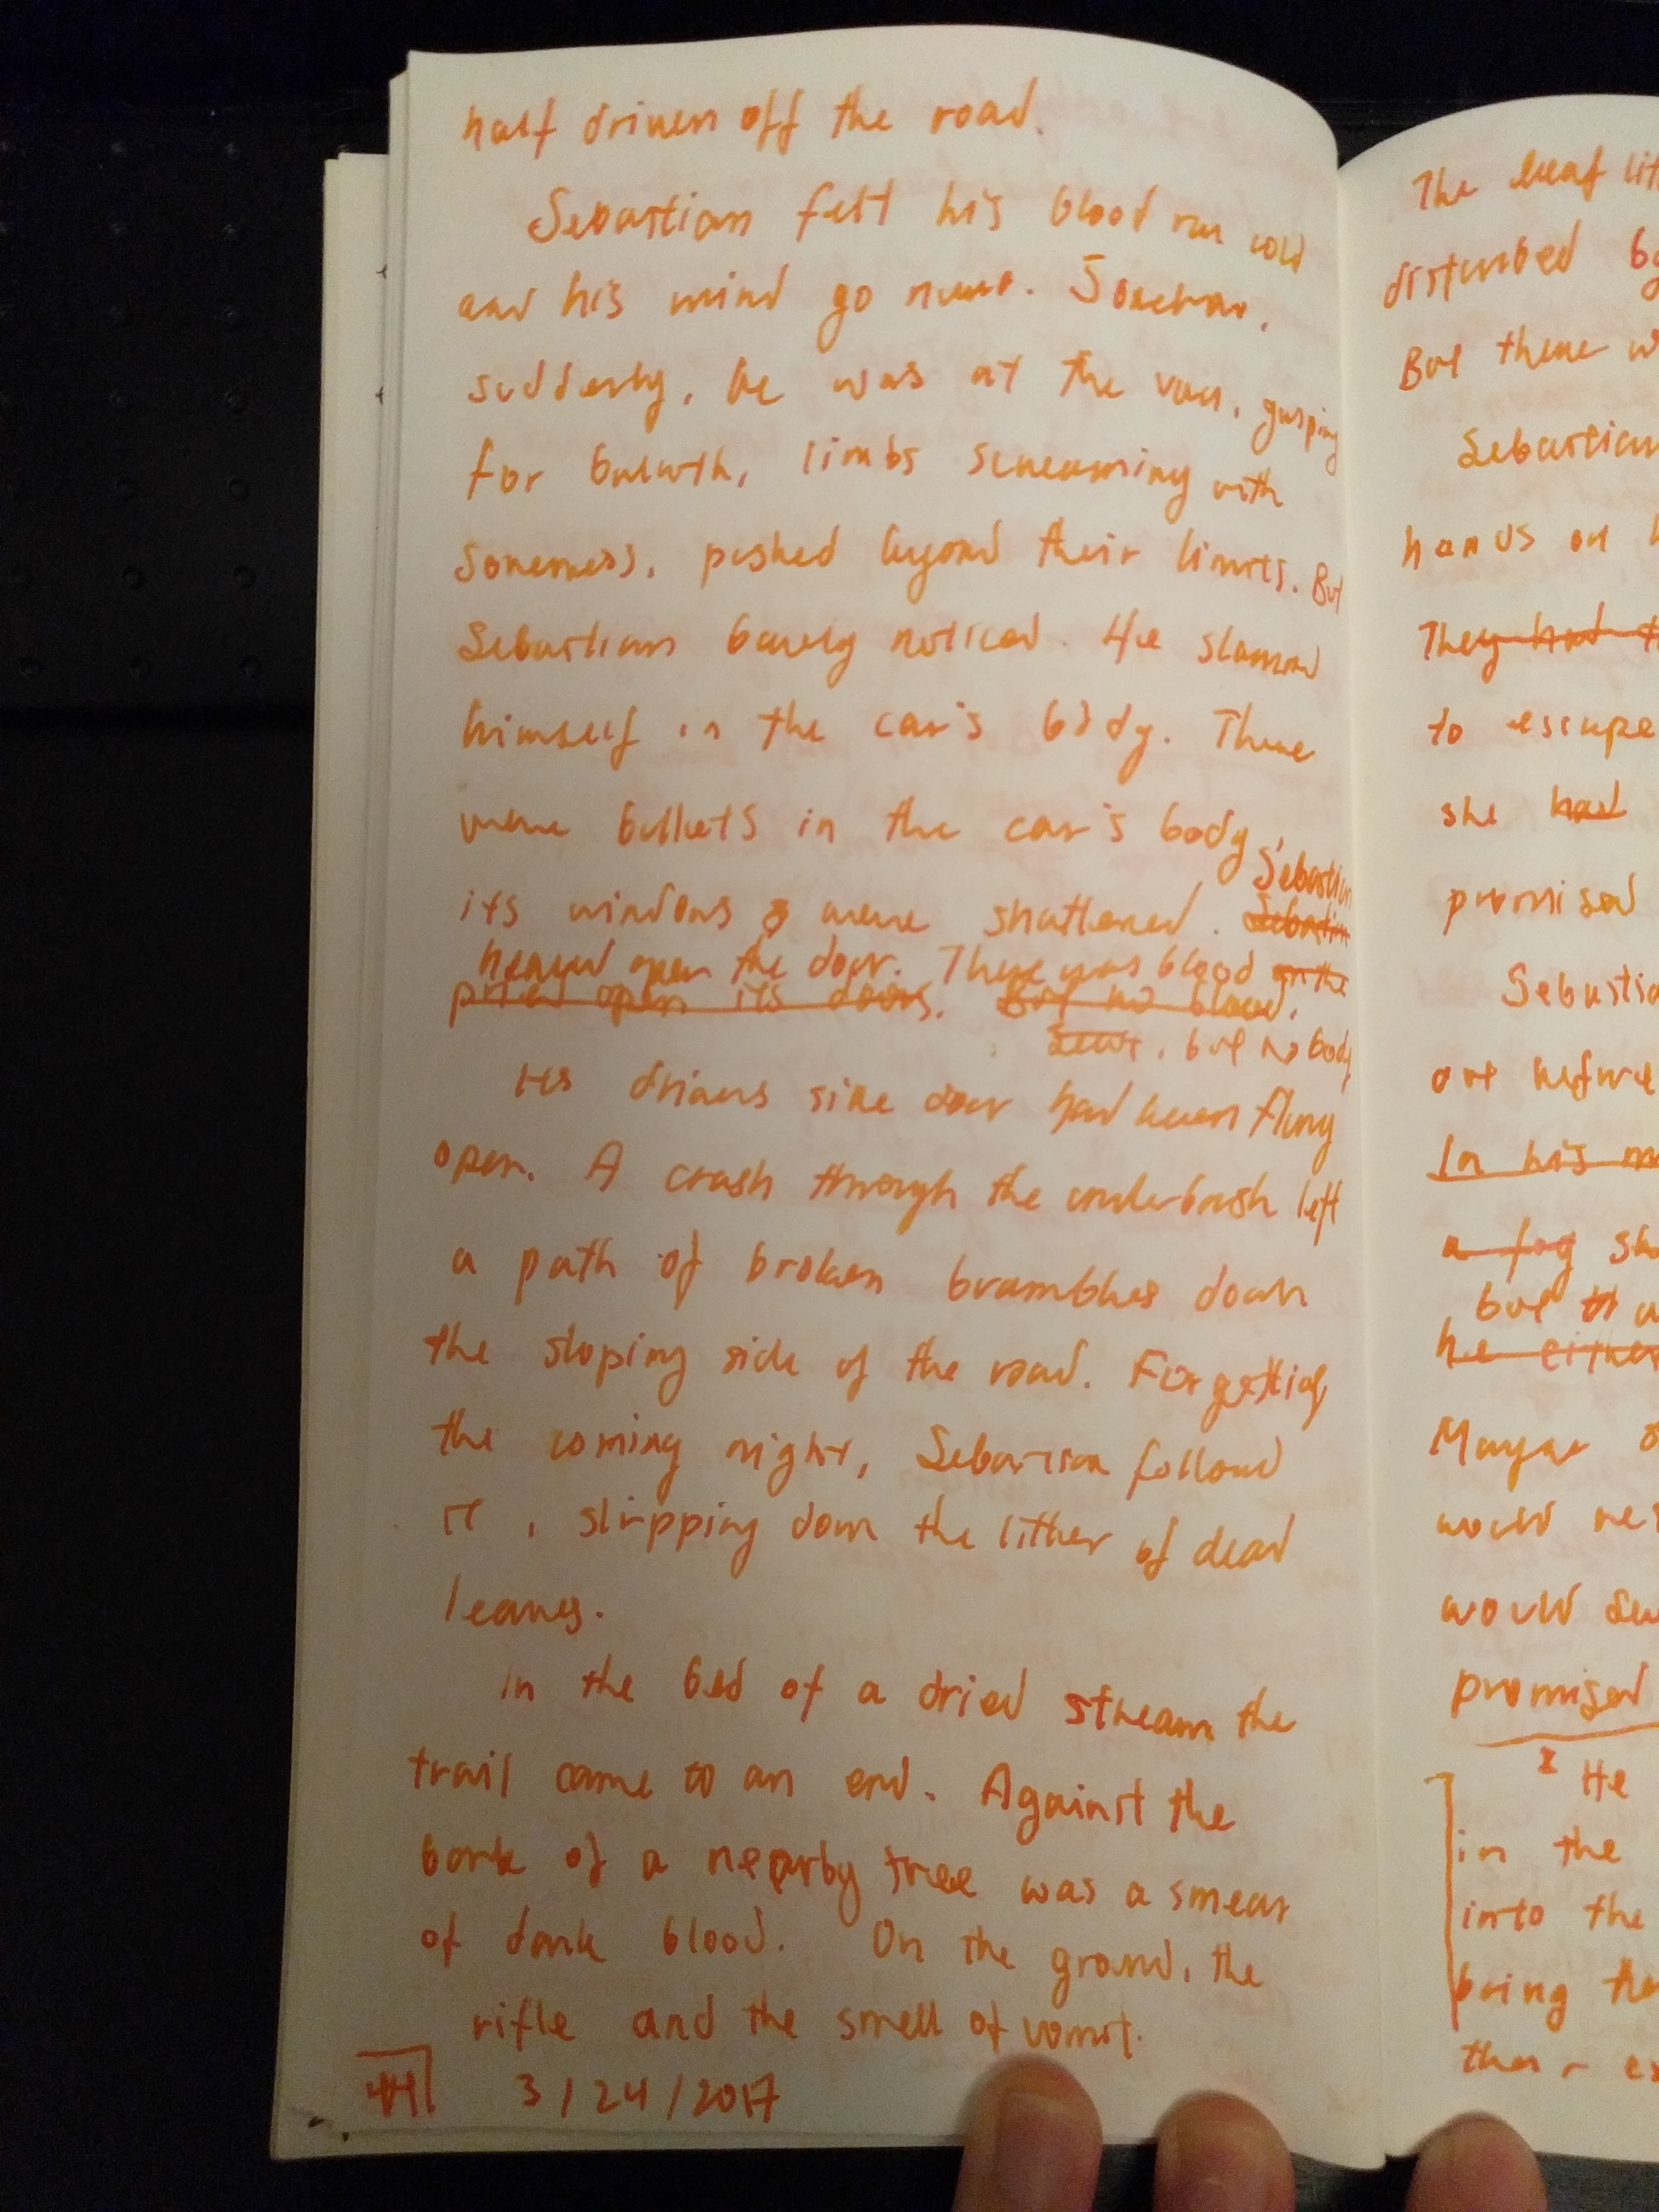 half driven off the road.
Sebastian felt his blood run cold
and his mind go numb. Somehow,
suddenly, he was at the van, gasping
for breath, limbs screaming with
soreness, pushed beyond their limits. But
Sebastian barely noticed. He slammed
himself in the car's body. There
were bullets in the car's body,
Sebastian
its windows were shattered. Sebastian
heaved open the door. There was blood on the
pried open its doors. But no blood.
seat, but no body
Its drivers side door had been flung
open. A crash through the underbrush left
a path of broken brambles down
the sloping side of the road. Forgetting
the coming night, Sebastian followed
it, slipping down the litter of dead
leaves.
In the bed of a dried stream the
trail came to an end. Against the
bark of a nearby tree was a smear
of dark blood. On the ground, the
rifle and the smell of vomit.
3/24/2017
The leaf
disturbed
But there
Sebastian
hands on
They had
to escape
she had
promised
out before
In his
a fog
but
he either
Maybe
would
would
promised
He
in the
into the
being